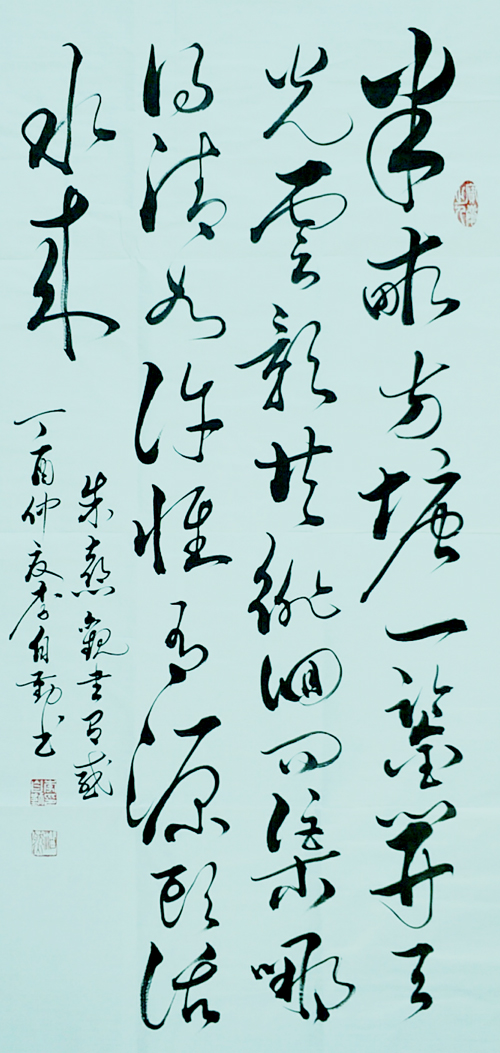 半畝方塘一鑒開天
光雲影共徘徊問渠哪
得清如許惟有源頭活
水來
朱熹觀書有感
丁酉仲夏李自勤书